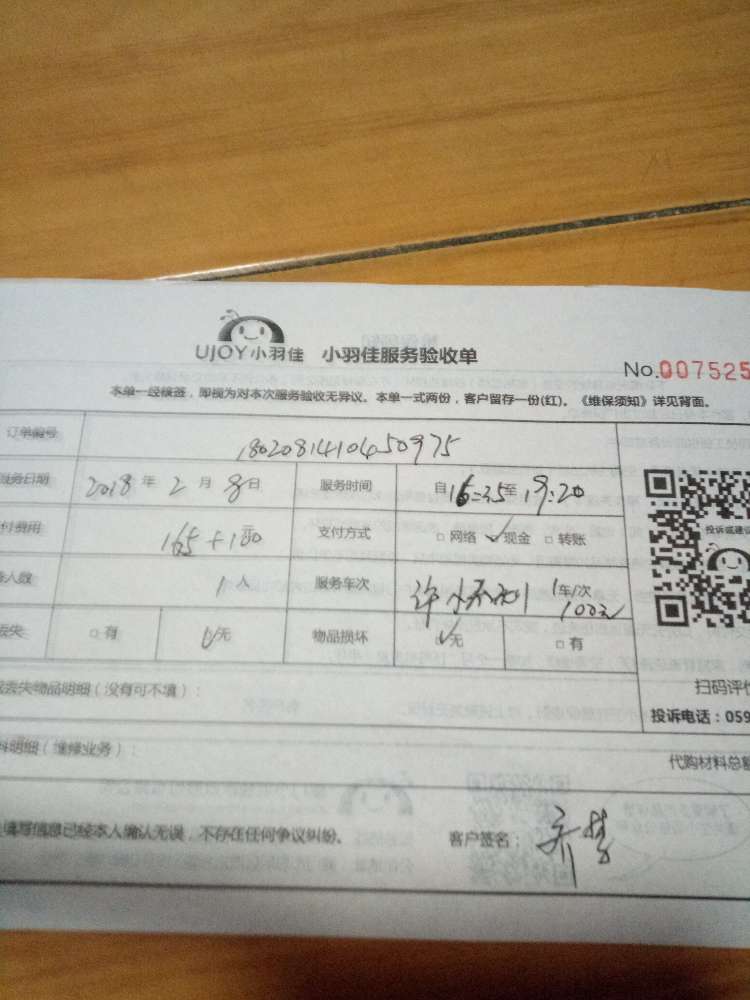 UJOY小羽佳 小羽佳服务验收单
No.007525
本单一经核签，即视为对本次服务验收无异议。本单一式两份，客户留存一份(红)。《维保须知》详见背面。
订单编号 1802081410450975
服务日期 2018年2月8日 服务时间 自16:35至19:20
付费用 165+100元 支付方式 □网络 ✓现金 □转账
投诉或建议
人数 1人 服务车次 1车/次 100元
丢失 □有 ✓无 物品损坏 ✓无 □有
或丢失物品明细（没有可不填）： 扫码评价
投诉电话：059
料明细（维修业务）： 代购材料总额
填写信息已经本人确认无误，不存在任何争议纠纷。 客户签名：